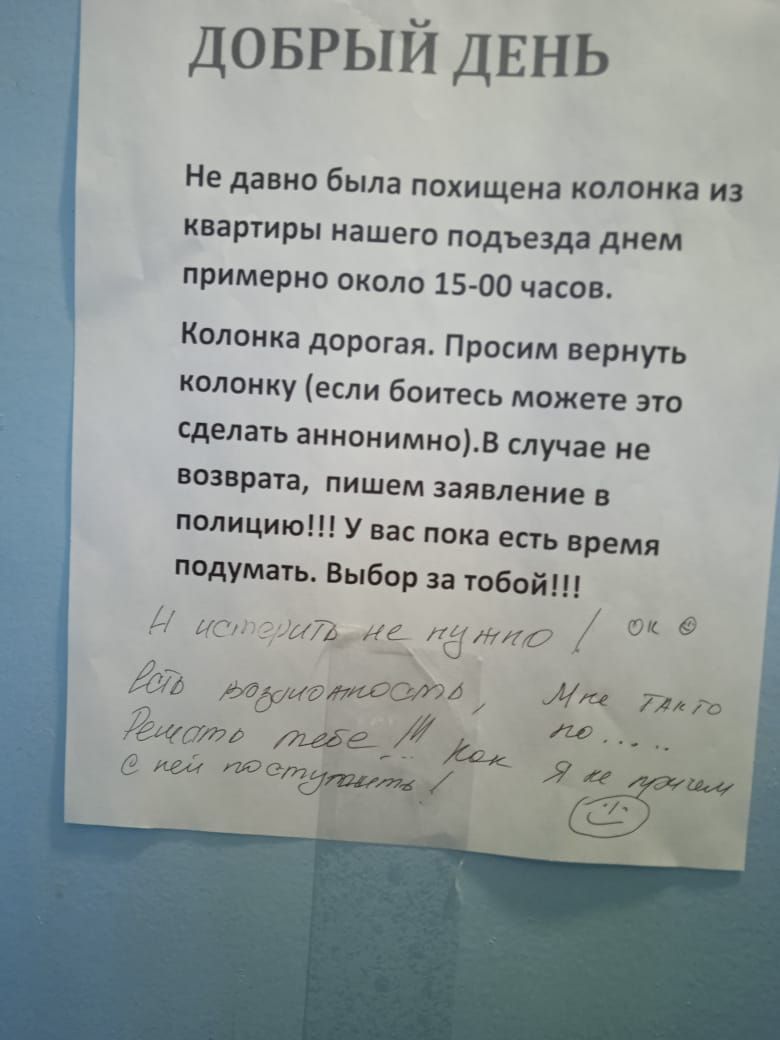 ДОБРЫЙ ДЕНЬ
Не давно была похищена колонка из
квартиры нашего подъезда днем
примерно около 15-00 часов.
Колонка дорогая. Просим вернуть
колонку (если боитесь можете это
сделать аннонимно).В случае не
возврата, пишем заявление в
полицию!!! У вас пока есть время
подумать. Выбор за тобой!!!
И истерить не нужно!
ок ☺
Есть возможность,
Решать тебе!!! Как
с ней поступить!
Мне такто
по.....
Я не причем